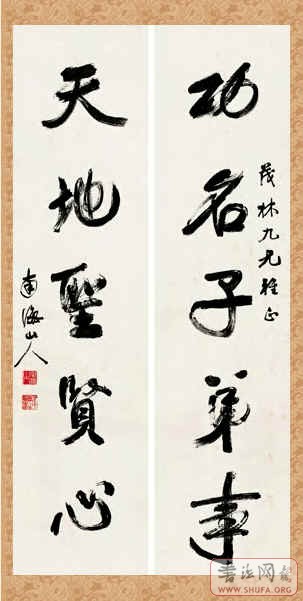 功名子弟事
茂林九兄雅正
天地聖賢心
南海山人
WWW.SHUFA.ORG